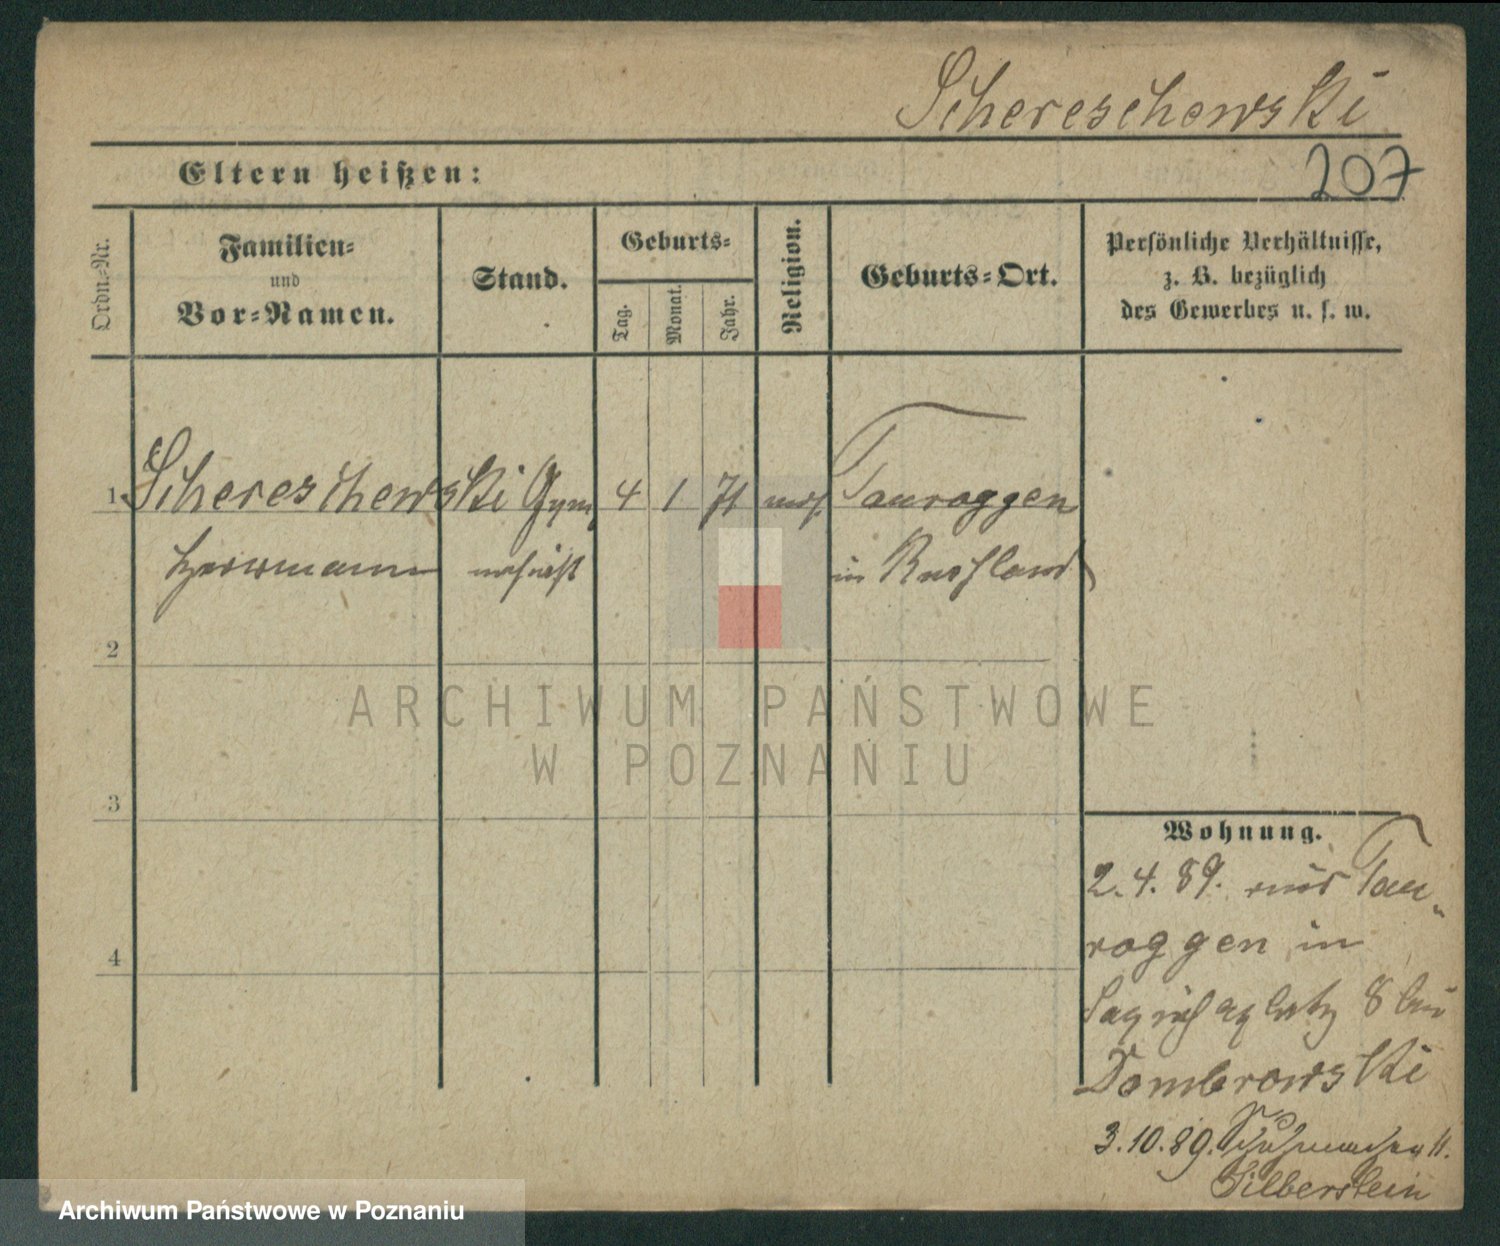 Schereschewski
207
Eltern heißen:
Ordn.-Nr.
Familien-
und
Vor-Namen.
Stand.
Geburts-
Tag.
Monat.
Jahr.
Religion.
Geburts-Ort.
Persönliche Verhältnisse,
z. B. bezüglich
des Gewerbes u. s. w.
1 Schereschewski Gym 4 1 71 mos. Tauroggen
Herrmann in Russland
2
3
4
ARCHIWUM PAŃSTWOWE
W POZNANIU
Wohnung.
2.4.89. aus Tau-
roggen in
Sapiehaplatz 8 bei
Dombrowski
3.10.89. 11.
Silberstein
Archiwum Państwowe w Poznaniu